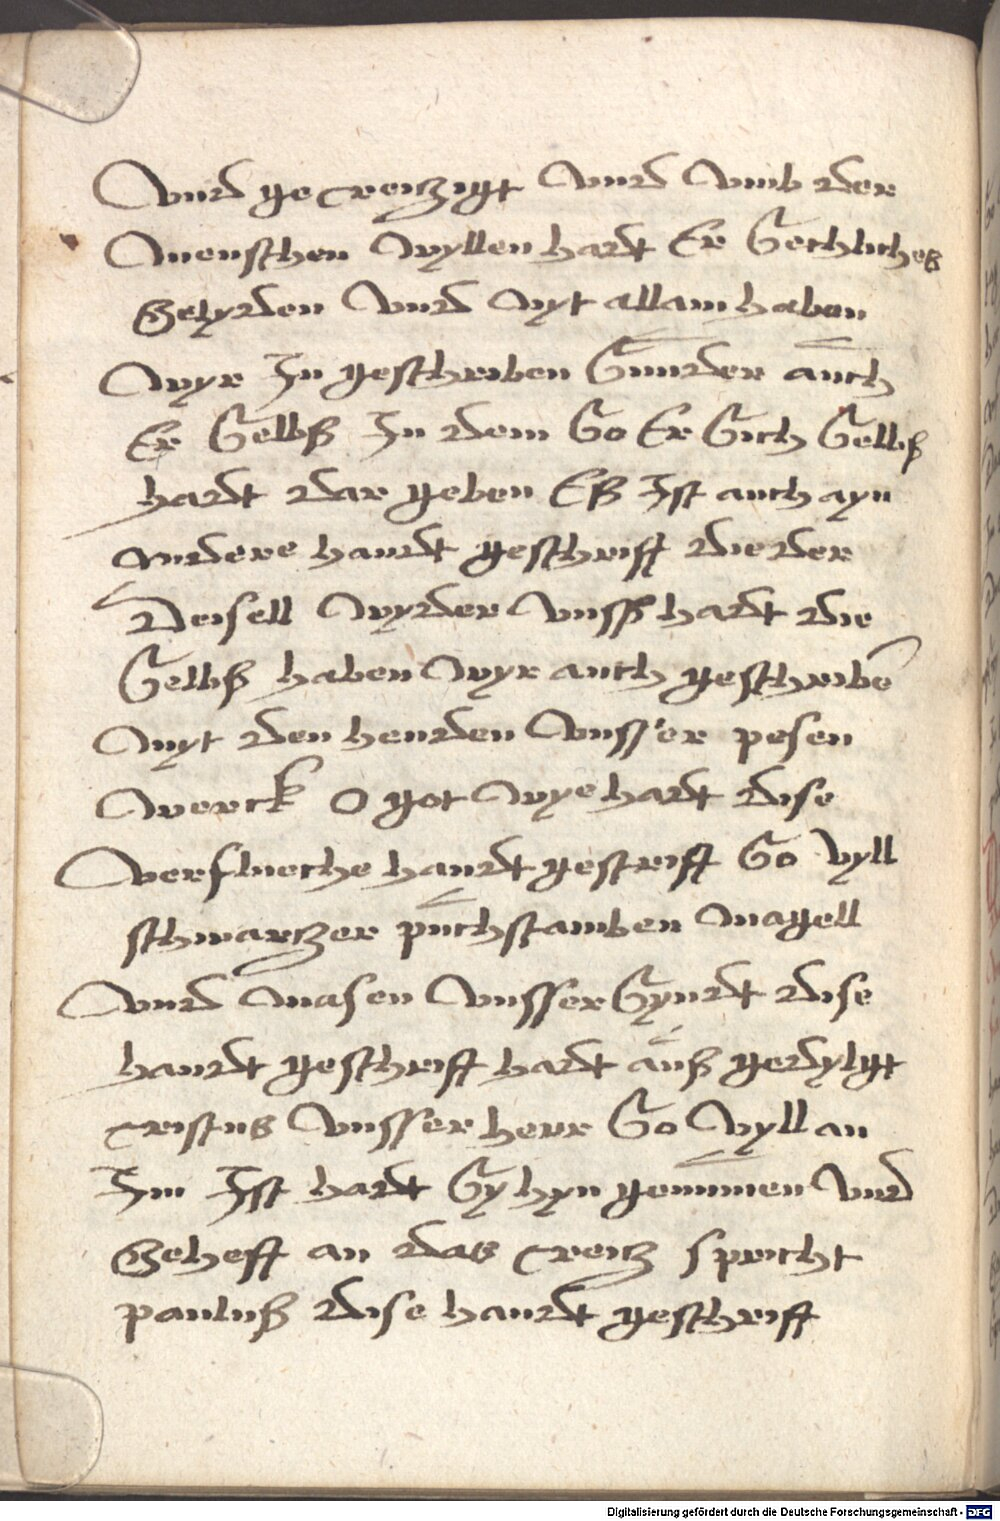 Vnd gecreitzigt Vnd Vmb der
Menschen Wyllen hardt Er Sechliches
Gelyrden Vnd Nyt allain haben
Wyr In geschriben Sunder auch
Er Selbß In dem So Er Sich Selbß
hardt dar geben Eß Ist auch ayn
andere handt geschrifft die der
Deifell Wyder Vnsß hardt die
Selbß haben Wyr auch geschribē
Myt den henden Vnsser pesen
Werck O got Wye hardt dise
Verfluechte handt gestrifft So Vyll
schwarczer puchstamben Magell
Vnd Masen Vnsser Syndt dise
handt geschrifft hardt auß gedylgt
cristus Vnsser herr So Vyll an
Im Ist hardt Sy hyn genumen Vnd
Gehefft an das creitz spricht
pauluß dise handt geschrifft
Digitalisierung gefördert durch die Deutsche Forschungsgemeinschaft - DFG